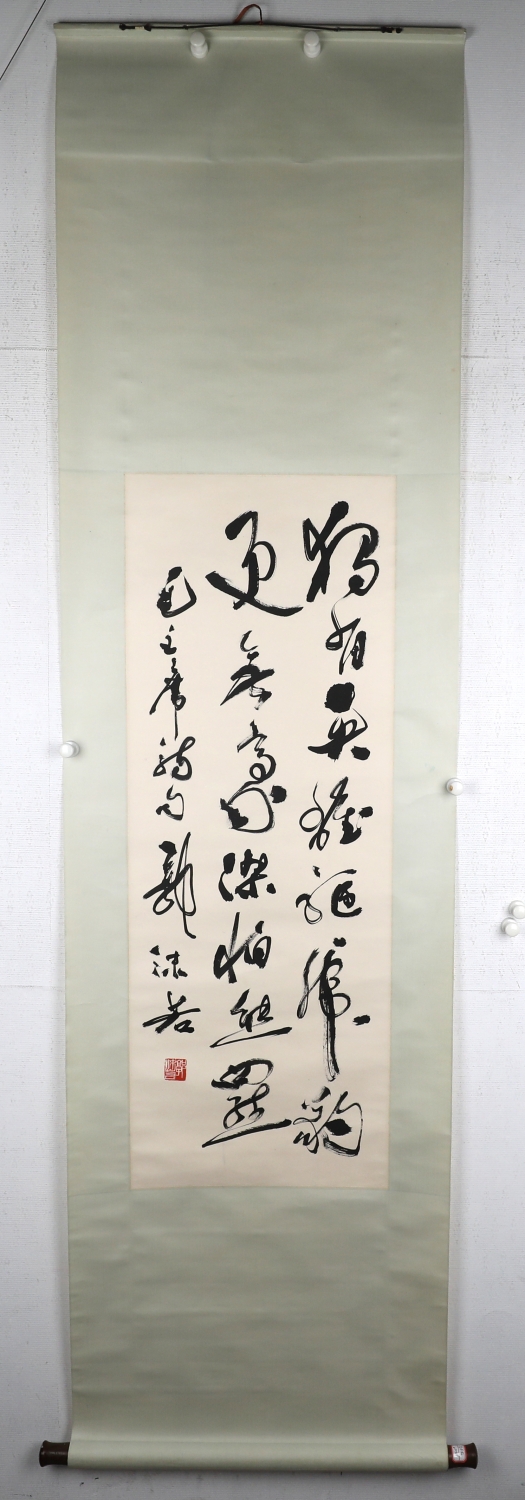 獨有英雄驅虎豹
更無豪傑怕熊羆
毛主席詩句 郭沫若